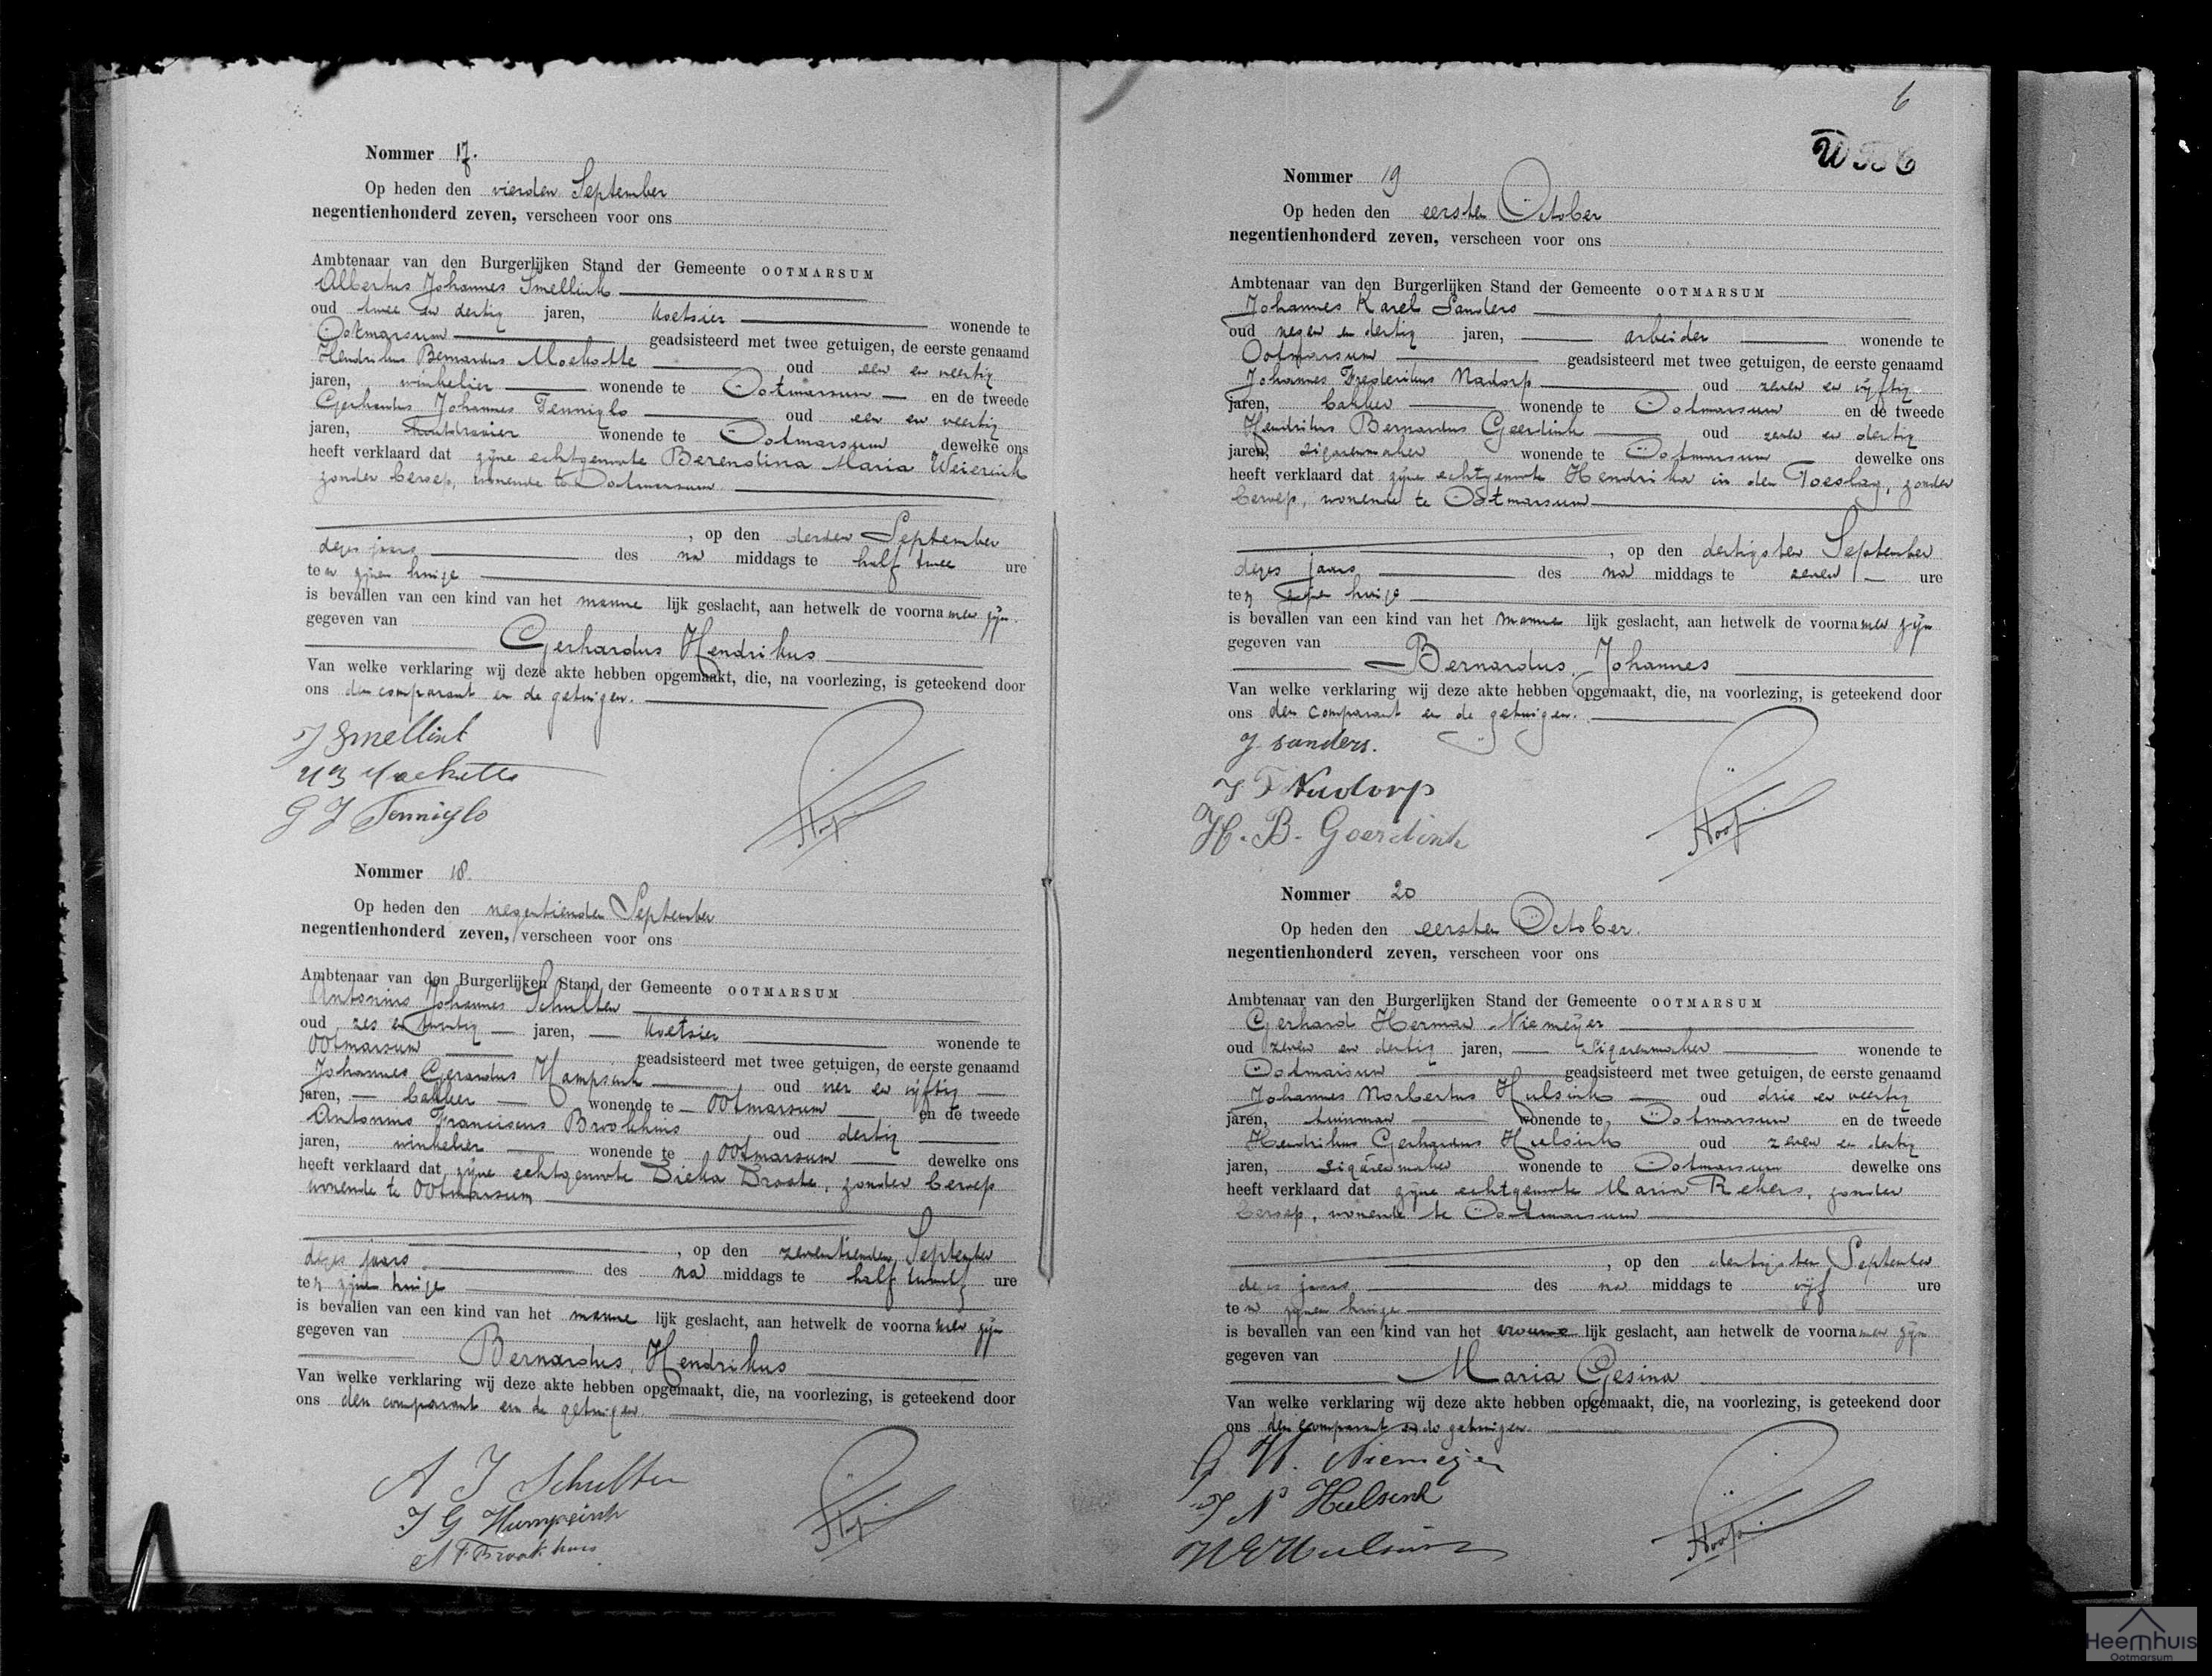 Nommer 17.
Op heden den vierden September
negentienhonderd zeven, verscheen voor ons
Ambtenaar van den Burgerlijken Stand der Gemeente OOTMARSUM
Albertus Johannes Smellink
oud twee en dertig jaren, koetsier wonende te
Ootmarsum geadsisteerd met twee getuigen, de eerste genaamd
Hendrikus Bernardus Moekotte oud een en veertig
jaren, winkelier wonende te Ootmarsum en de tweede
Gerhardus Johannes Tenniglo oud een en veertig
jaren, houtdraaier wonende te Ootmarsum dewelke ons
heeft verklaard dat zijne echtgenoote Berendina Maria Weierink
zonder beroep, wonende te Ootmarsum
, op den derden September
dezes jaars des na middags te half twee ure
ten zijnen huize
is bevallen van een kind van het manne lijk geslacht, aan hetwelk de voornamen zijn
gegeven van
Gerhardus Hendrikus
Van welke verklaring wij deze akte hebben opgemaakt, die, na voorlezing, is geteekend door
ons den comparant en de getuigen.
J Smellink
G J Tenniglo
Nommer 18.
Op heden den negentienden September
negentienhonderd zeven, verscheen voor ons
Ambtenaar van den Burgerlijken Stand der Gemeente OOTMARSUM
Antonius Johannes Schulten
oud zes en twintig jaren, koetsier wonende te
Ootmarsum geadsisteerd met twee getuigen, de eerste genaamd
Johannes Gerardus Kampsink oud vier en vijftig
jaren, bakker wonende te Ootmarsum en de tweede
Antonius Franciscus Brookhuis oud dertig
jaren, winkelier wonende te Ootmarsum dewelke ons
heeft verklaard dat zijne echtgenoote Dieka Droste, zonder beroep
wonende te Ootmarsum
, op den zeventienden September
dezes jaars des na middags te half twaalf ure
ten zijnen huize
is bevallen van een kind van het manne lijk geslacht, aan hetwelk de voornamen zijn
gegeven van
Bernardus Hendrikus
Van welke verklaring wij deze akte hebben opgemaakt, die, na voorlezing, is geteekend door
ons den comparant en de getuigen
A J Schulten
J G
A F Brookhuis
6
Nommer 19
Op heden den eersten October
negentienhonderd zeven, verscheen voor ons
Ambtenaar van den Burgerlijken Stand der Gemeente OOTMARSUM
Johannes Karel Sanders
oud negen en dertig jaren, arbeider wonende te
Ootmarsum geadsisteerd met twee getuigen, de eerste genaamd
Johannes Frederikus Nadorp oud zeven en vijftig
jaren, bakker wonende te Ootmarsum en de tweede
Hendrikus Bernardus Geerdink oud zeven en dertig
jaren, sigarenmaker wonende te Ootmarsum dewelke ons
heeft verklaard dat zijne echtgenoote Hendrika in den Toeslag, zonder
beroep, wonende te Ootmarsum
, op den dertigsten September
dezes jaars des na middags te zeven ure
ten zijnen huize
is bevallen van een kind van het manne lijk geslacht, aan hetwelk de voornamen zijn
gegeven van
Bernardus Johannes
Van welke verklaring wij deze akte hebben opgemaakt, die, na voorlezing, is geteekend door
ons den comparant en de getuigen.
J sanders.
J F Nadorp
H. B. Geerdink
Nommer 20
Op heden den eersten October.
negentienhonderd zeven, verscheen voor ons
Ambtenaar van den Burgerlijken Stand der Gemeente OOTMARSUM
Gerhard Herman Niemeijer
oud zeven en dertig jaren, sigarenmaker wonende te
Ootmarsum geadsisteerd met twee getuigen, de eerste genaamd
Johannes Norbertus Hulsink oud drie en veertig
jaren, tuinman wonende te Ootmarsum en de tweede
Hendrikus Gerhardus Hulsink oud zeven en dertig
jaren, sigarenmaker wonende te Ootmarsum dewelke ons
heeft verklaard dat zijne echtgenoote Maria Rekers, zonder
beroep, wonende te Ootmarsum
, op den dertigsten September
dezes jaars des na middags te vijf ure
ten zijnen huize
is bevallen van een kind van het vrouwe lijk geslacht, aan hetwelk de voornamen zijn
gegeven van
Maria Gesina
Van welke verklaring wij deze akte hebben opgemaakt, die, na voorlezing, is geteekend door
ons den comparant en de getuigen.
G. H. Niemeijer
J N Hulsink
Heemhuis
Ootmarsum